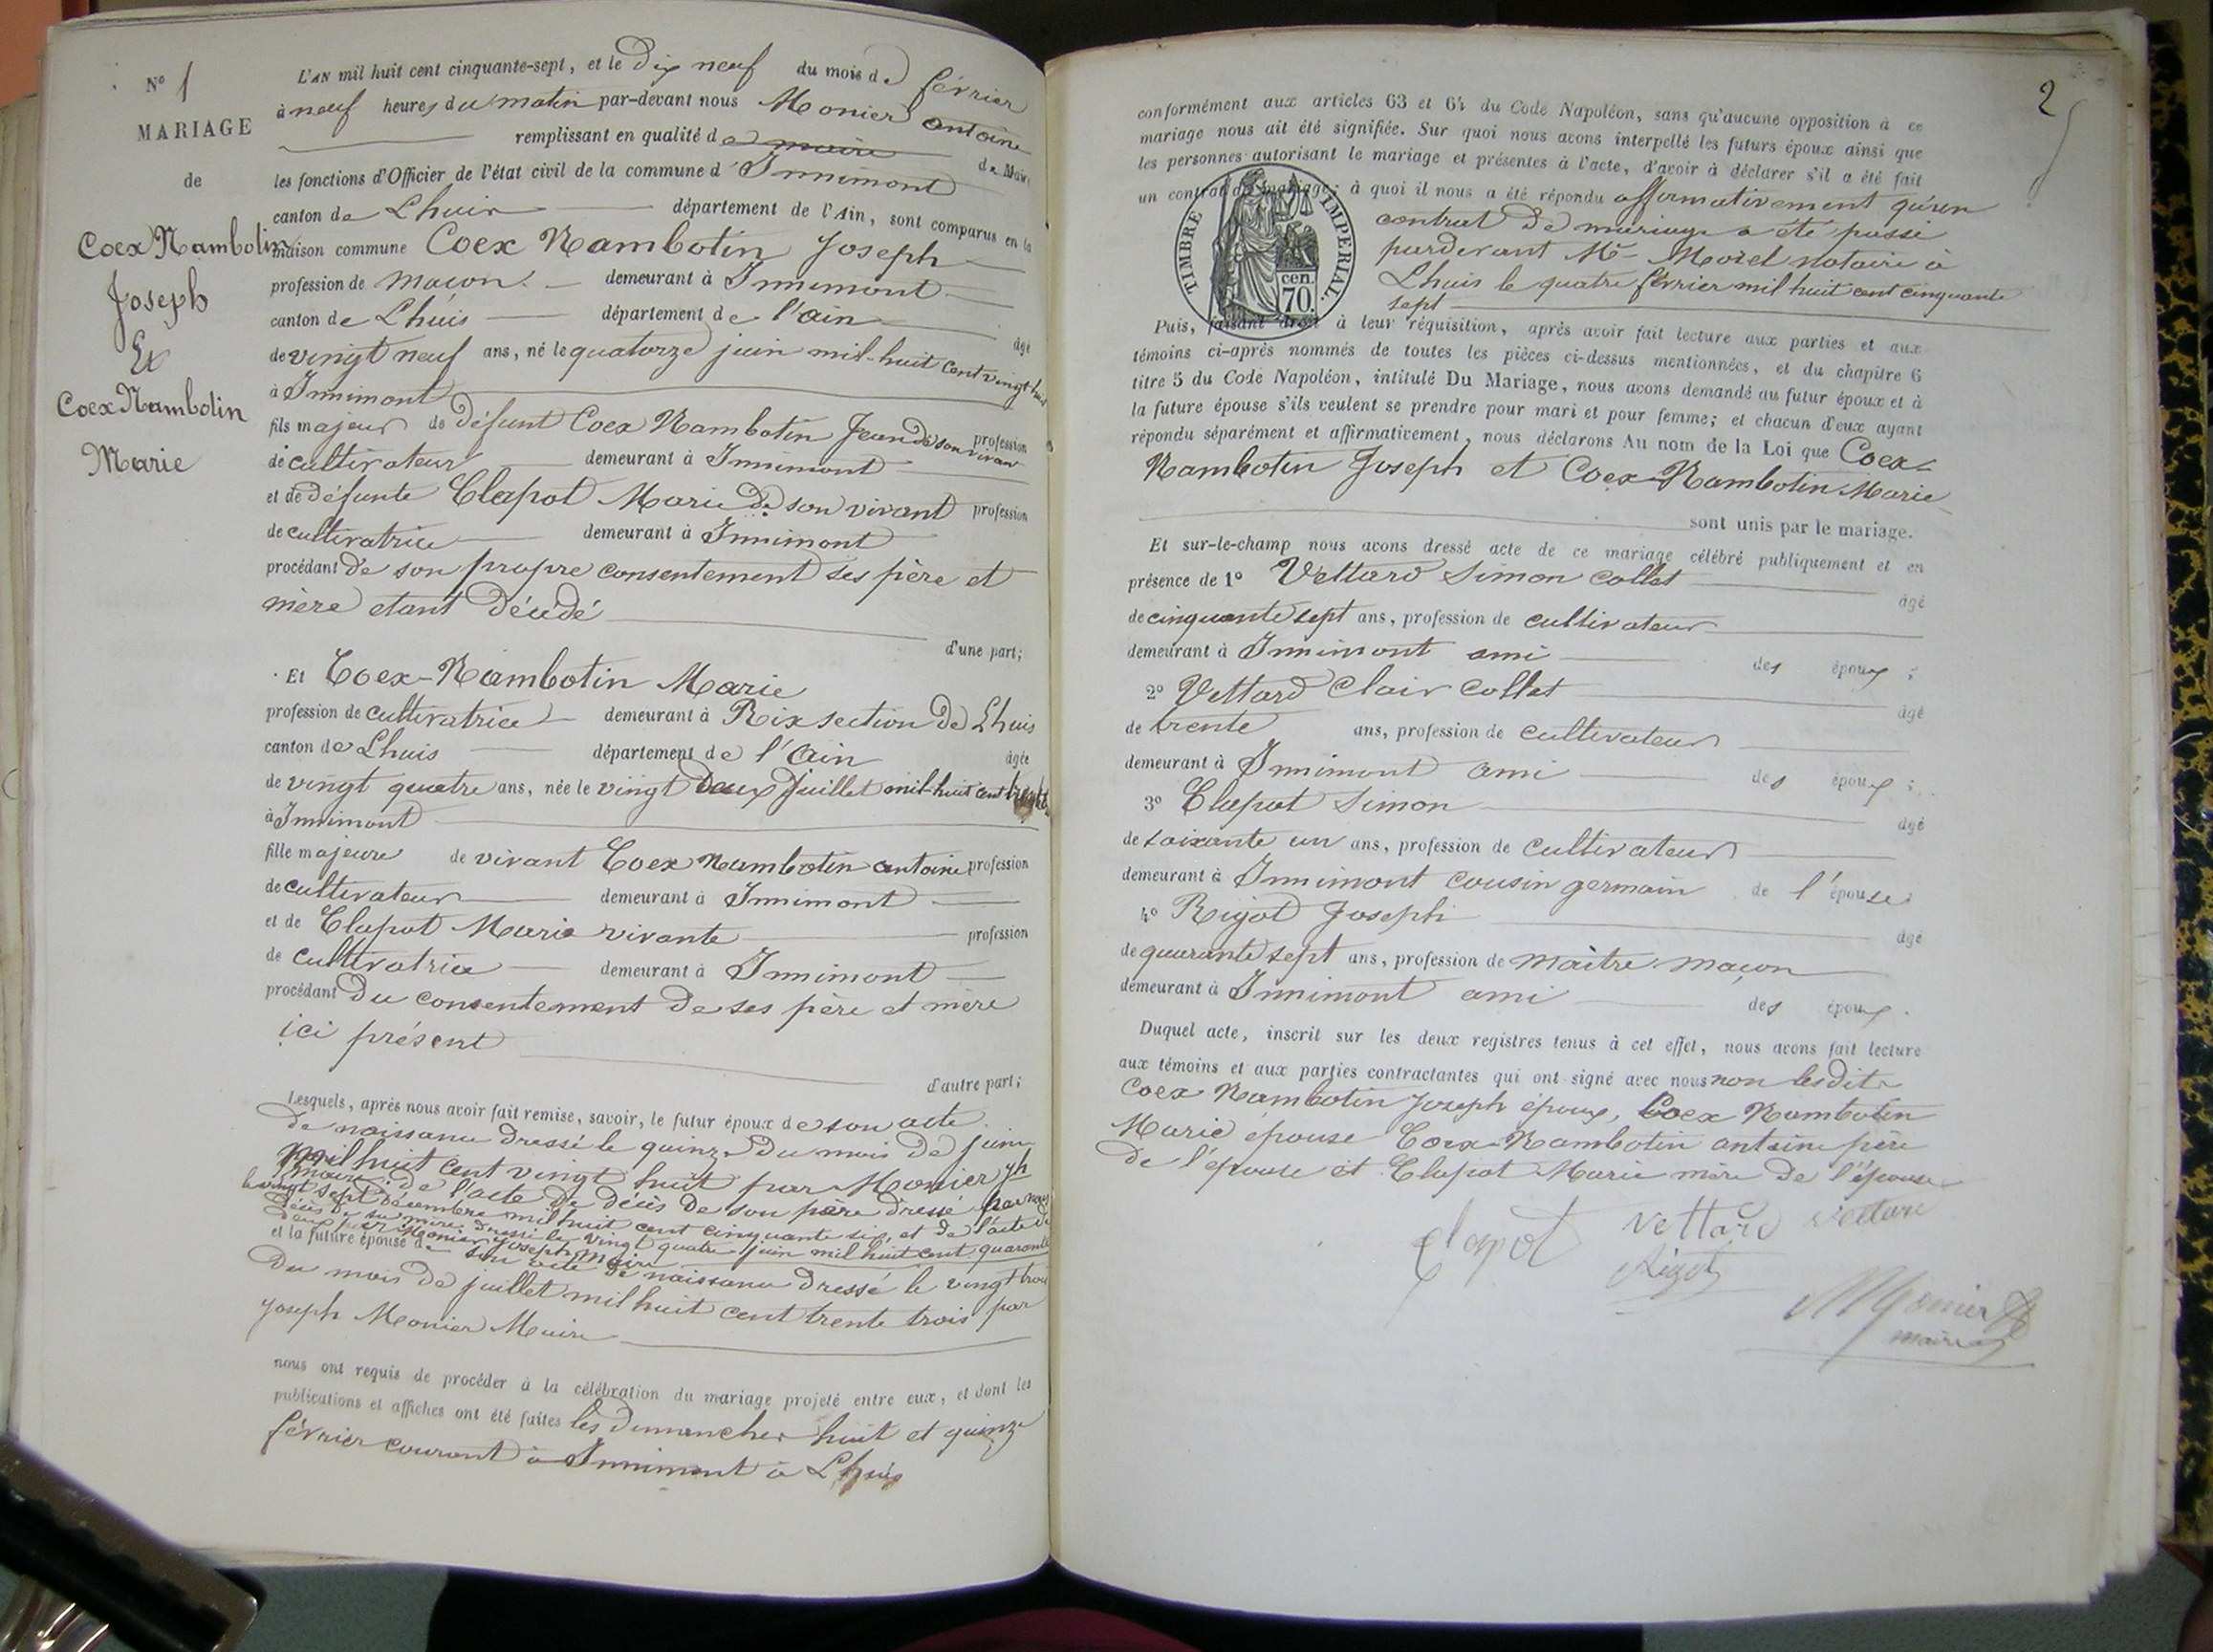 N° 1
MARIAGE
de
Coex Nambotin
Joseph
Et
Coex Nambotin
Marie
L'AN mil huit cent cinquante-sept, et le Dix neuf du mois de février
à neuf heures du matin par-devant nous Monier antoine
remplissant en qualité de maire de Maire
les fonctions d'Officier de l'état civil de la commune d'Innimont
canton de Lhuis département de l'Ain, sont comparus en la
maison commune Coex Nambotin Joseph
profession de macon demeurant à Innimont
canton de Lhuis département de l'ain âgé
de vingt neuf ans, né le quatorze juin mil huit cent vingt huit
à Innimont
fils majeur de défunt Coex Nambotin Jean de son vivant profession
de cultivateur demeurant à Innimont
et de défunte Clapot Marie de son vivant profession
de cultivatrice demeurant à Innimont
procédant de son propre consentement ses père et
mère etant décédé
d'une part;
Et Coex-Nambotin Marie
profession de cultivatrice demeurant à Rix section de Lhuis
canton de Lhuis département de l'ain âgée
de vingt quatre ans, née le vingt deux Juillet mil huit cent
à Innimont
fille majeure de vivant Coex Nambotin antoine profession
de cultivateur demeurant à Innimont
et de Clapot Marie vivante profession
de cultivatrice demeurant à Innimont
procédant du consentement de ses père et mère
ici présent
d'autre part;
Lesquels, après nous avoir fait remise, savoir, le futur époux de son acte
de naissance dressé le quinze du mois de juin
mil huit cent vingt huit par Monier jh
maire; de l'acte de décès de son père dressé par nous
le vingt sept décembre mil huit cent cinquante six, et de l'acte de
décès de sa mère dressé le vingt quatre juin mil huit cent quarante
deux par Monier Joseph maire
et la future épouse de son acte de naissance dressé le vingt trois
du mois de juillet mil huit cent trente trois par
Joseph Monier Maire
nous ont requis de procéder à la célébration du mariage projeté entre eux, et dont les
publications et affiches ont été faites les dimanches huit et quinze
février courant à Innimont à Lhuis
2
conformément aux articles 63 et 64 du Code Napoléon, sans qu'aucune opposition à ce
mariage nous ait été signifiée. Sur quoi nous avons interpellé les futurs époux ainsi que
les personnes autorisant le mariage et présentes à l'acte, d'avoir à déclarer s'il a été fait
un contrat de mariage; à quoi il nous a été répondu affirmativement qu'un
contrat de mariage a été passé
pardevant Me Morel notaire à
Lhuis le quatre février mil huit cent cinquante
sept
TIMBRE IMPERIAL.
cen.
70.
Puis, faisant droit à leur réquisition, après avoir fait lecture aux parties et aux
témoins ci-après nommés de toutes les pièces ci-dessus mentionnées, et du chapitre 6
titre 5 du Code Napoléon, intitulé Du Mariage, nous avons demandé au futur époux et à
la future épouse s'ils veulent se prendre pour mari et pour femme; et chacun d'eux ayant
répondu séparément et affirmativement, nous déclarons Au nom de la Loi que Coex
Nambotin Joseph et Coex-Nambotin Marie
sont unis par le mariage.
Et sur-le-champ nous avons dressé acte de ce mariage célébré publiquement et en
présence de 1° Vettard Simon collet âgé
de cinquante sept ans, profession de cultivateur
demeurant à Innimont ami des époux;
2° Vettard Clair collet âgé
de trente ans, profession de cultivateur
demeurant à Innimont ami des époux;
3° Clapot Simon âgé
de soixante un ans, profession de cultivateur
demeurant à Innimont cousin germain de l'épouse
4° Rigot Joseph âgé
de quarante sept ans, profession de maître maçon
demeurant à Innimont ami des époux.
Duquel acte, inscrit sur les deux registres tenus à cet effet, nous avons fait lecture
aux témoins et aux parties contractantes qui ont signé avec nous non lesdits
Coex Nambotin Joseph époux, Coex Nambotin
Marie épouse Coex-Nambotin antoine père
de l'épouse et Clapot Marie mère de l'épouse
Clapot Vettard Vettard
Rigot
Monier
maire